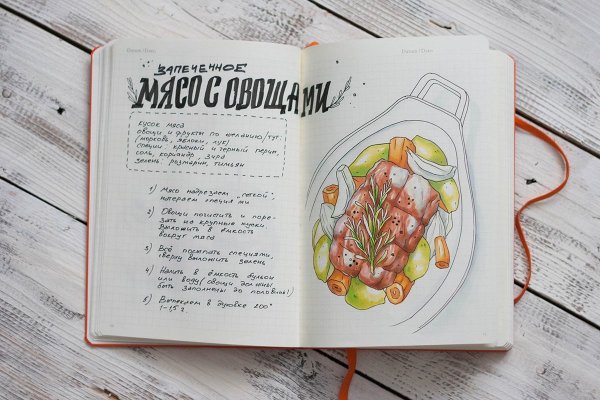 Datum / Date
ЗАПЕЧЕННОЕ
МЯСО С ОВОЩАМИ
кусок мяса
овощи и фрукты по желанию/тут:
(морковь, яблоки, лук)
специи: красный и черный перец,
соль, кориандр, зира
зелень: розмарин, тимьян
1) Мясо надрезаем "сеткой",
натираем специями
2) Овощи почистить и поре-
зать на крупные куски.
Выложить в ёмкость
вокруг мяса
3) Всё посыпать специями,
сверху выложить зелень
4) Налить в ёмкость бульон
или воду (овощи должны
быть заполнены до половины!)
5) Выпекаем в духовке 200°
1-1,5 ч
Datum / Date